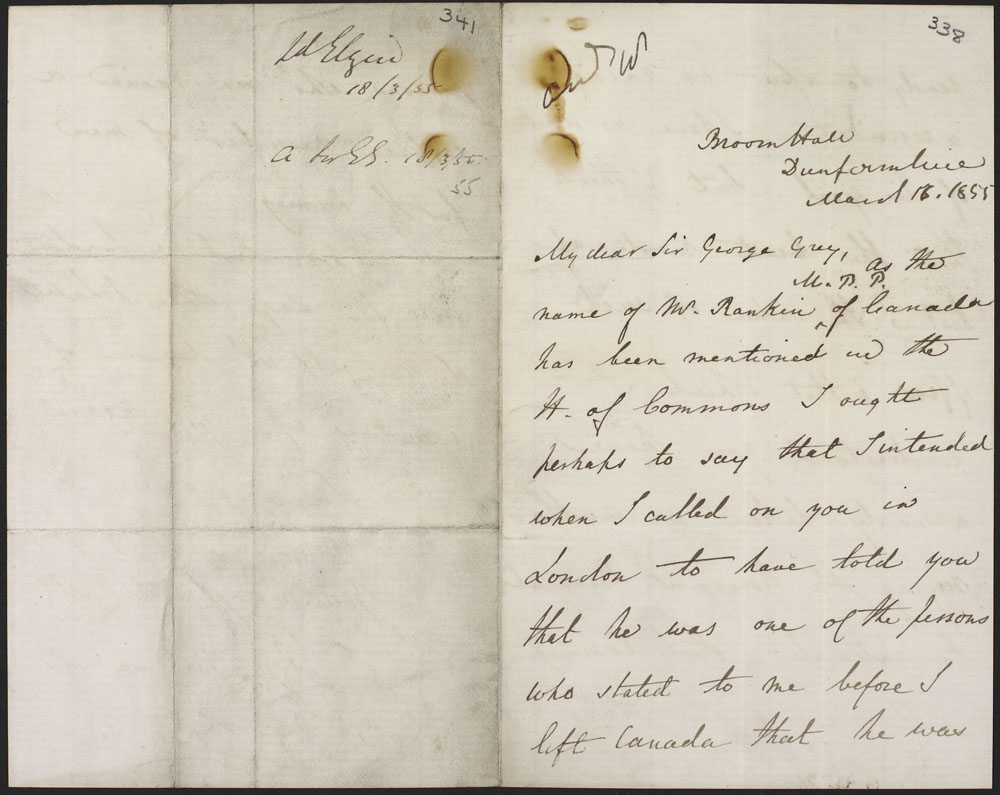 341
Ld Elgin
18/3/55
18/3/55
55
338
Broom Hall
Dunfermline
March 16. 1855
My dear Sir George Grey,
as the
M. P. P.
name of Mr. Rankin ^ of Canada
has been mentioned in the
H. of Commons I ought
perhaps to say that I intended
when I called on you in
London to have told you
that he was one of the persons
who stated to me before I
left Canada that he was